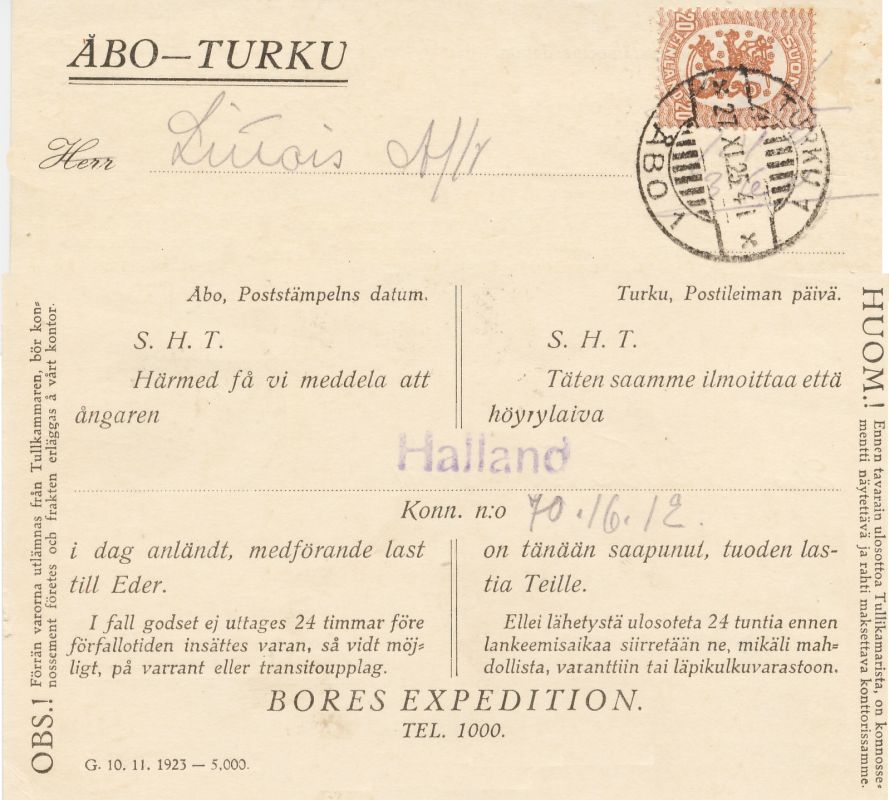 ÅBO—TURKU
Herr
SUOMI
20 PENNIÄ 20
TURKU
ÅBO 1
Åbo, Poststämpelns datum.
S. H. T.
Härmed få vi meddela att
ångaren
Turku, Postileiman päivä.
S. H. T.
Täten saamme ilmoittaa että
höyrylaiva
Halland
Konn. n:o 70.16.12.
i dag anländt, medförande last
till Eder.
I fall godset ej uttages 24 timmar före
förfallotiden insättes varan, så vidt möj-
ligt, på varrant eller transitoupplag.
on tänään saapunut, tuoden las-
tia Teille.
Ellei lähetystä ulosoteta 24 tuntia ennen
lankeemisaikaa siirretään ne, mikäli mah-
dollista, varanttiin tai läpikulkuvarastoon.
BORES EXPEDITION.
TEL. 1000.
G. 10. 11. 1923 — 5,000.
OBS.! Förrän varorna utlämnas från Tullkammaren, bör kon-
nossement företes och frakten erläggas å vårt kontor.
HUOM.! Ennen tavarain ulosottoa Tullikamarista, on konnosse-
mentti näytettävä ja rahti maksettava konttorissamme.